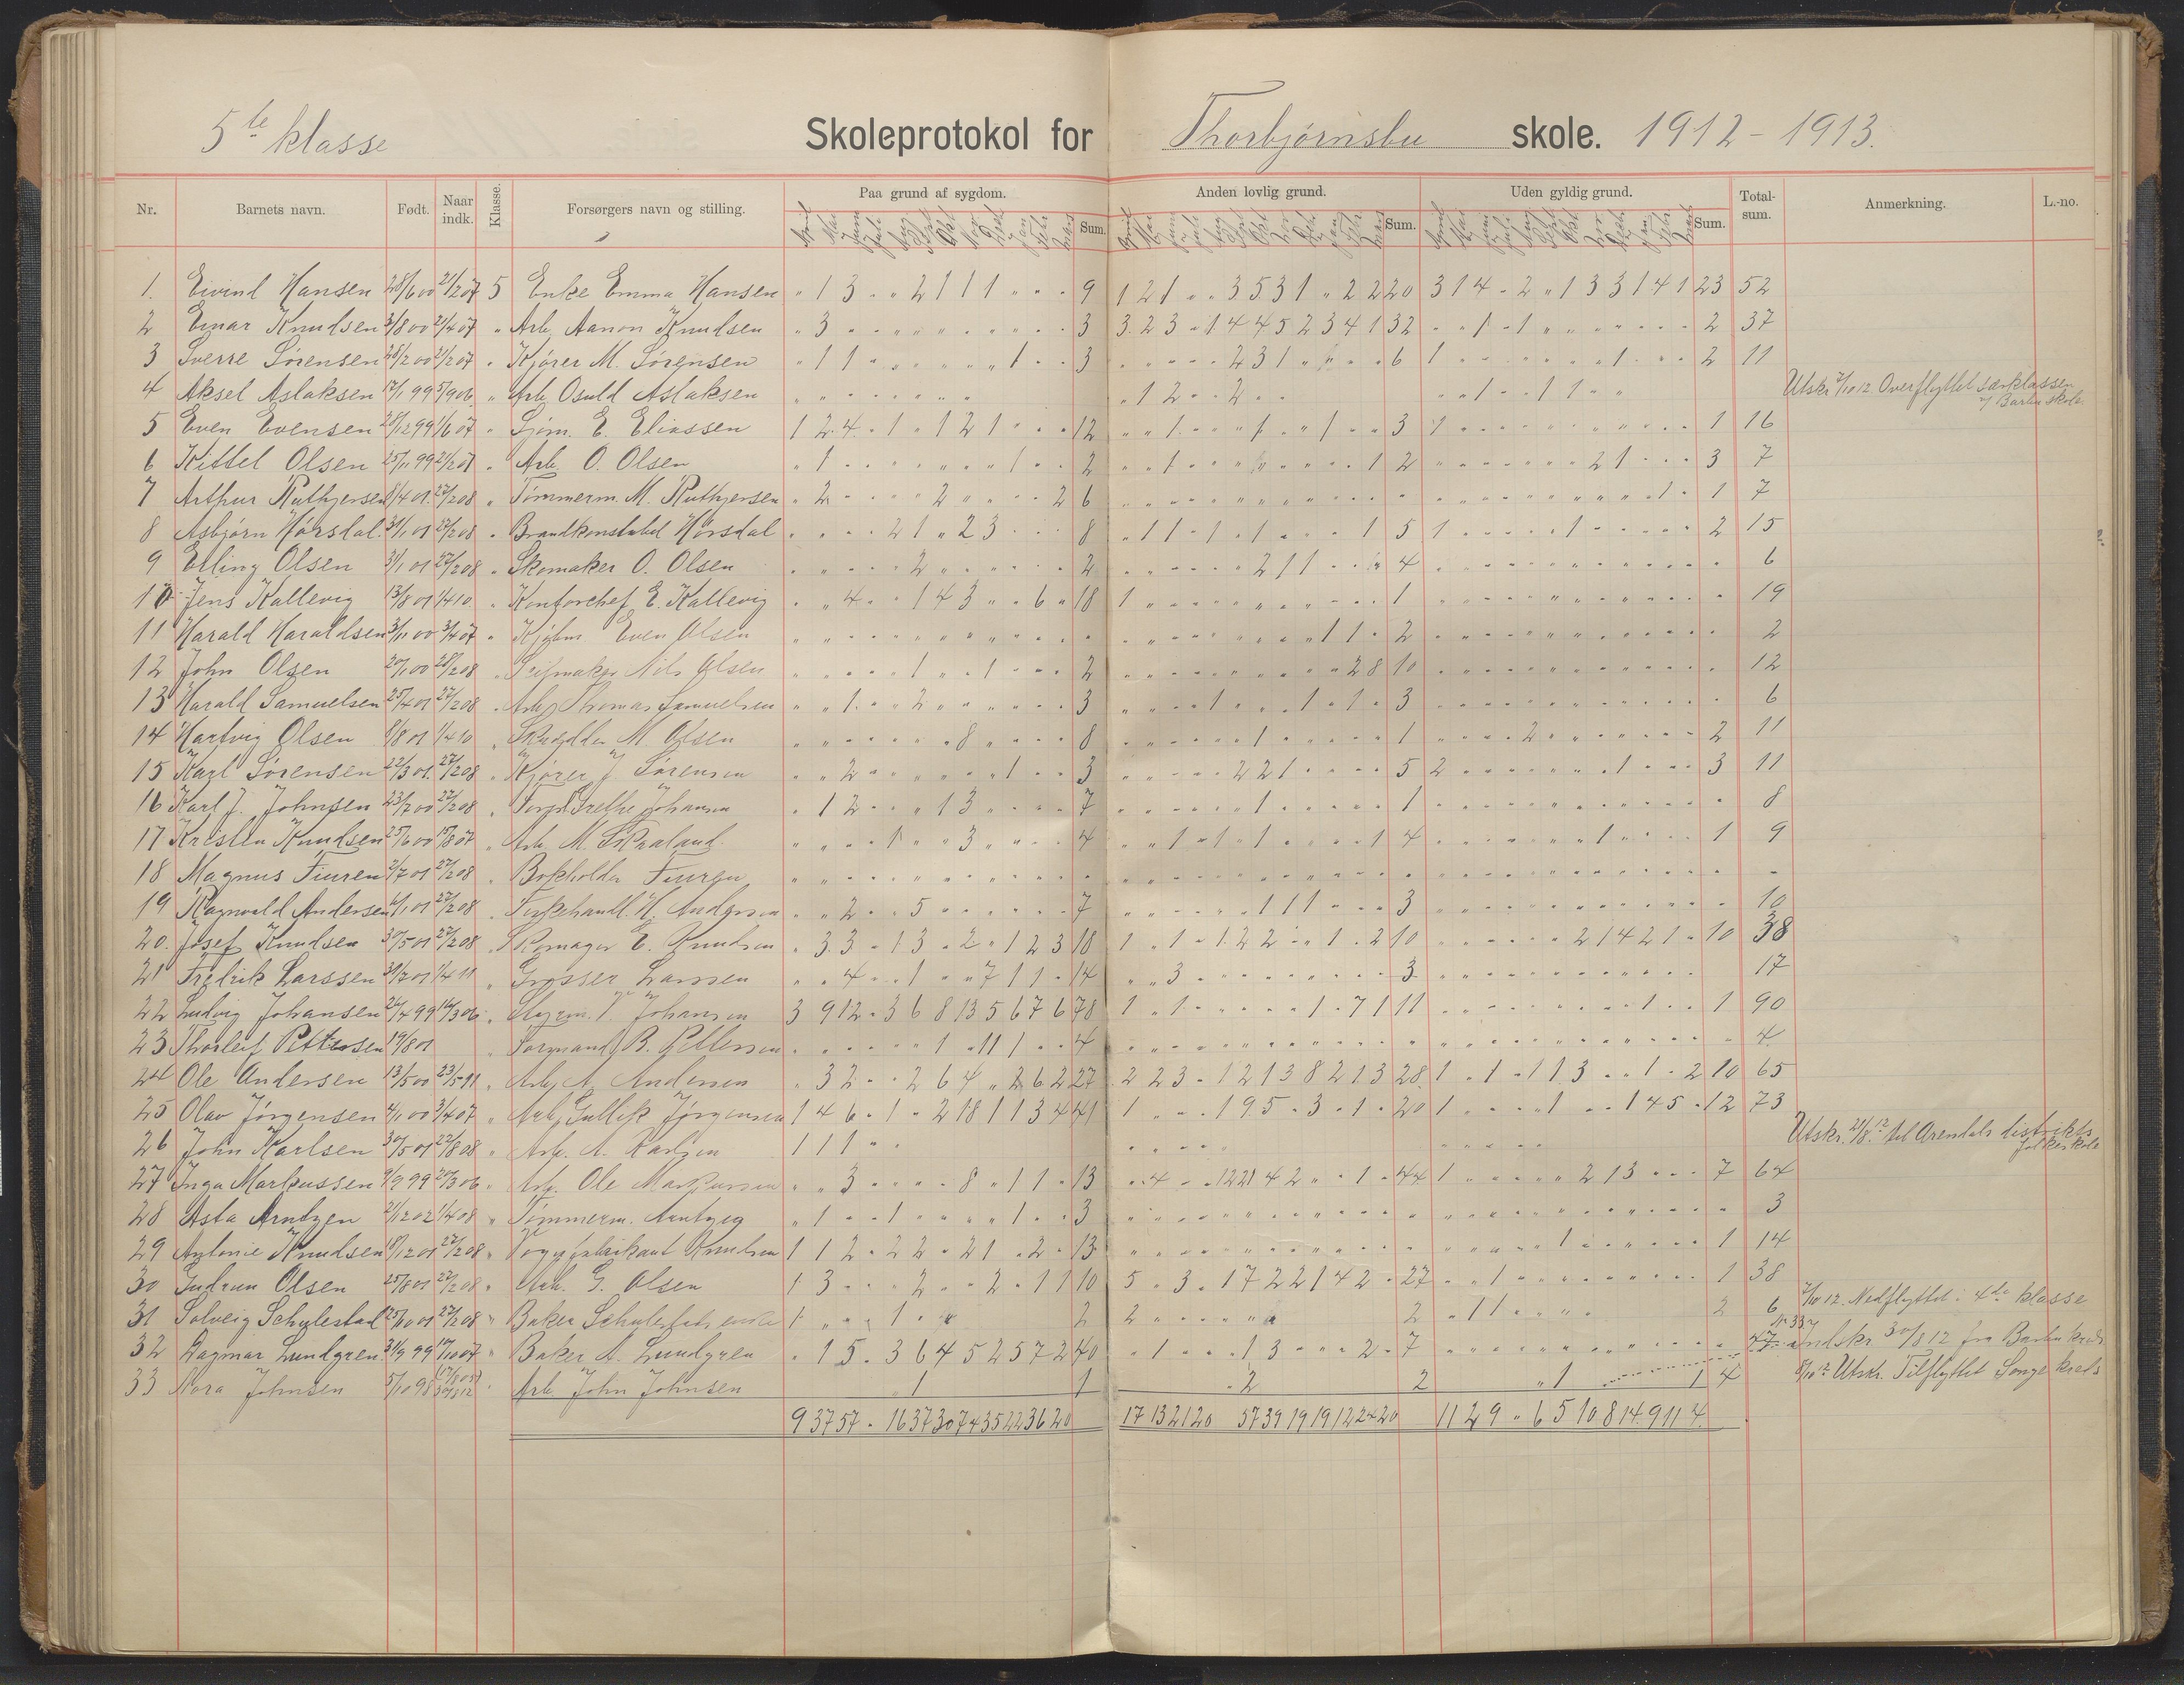 5te klasse Skoleprotokol for Thorbjørnsbu skole. 1912-1913.
Nr. Barnets navn. Født. Naar indk. Klasse. Forsørgers navn og stilling. Paa grund af sygdom. Sum. Anden lovlig grund. Sum. Uden gyldig grund. Sum. Total-sum. Anmerkning. L.-no.
1. Eivind Hansen 28/6 00 21/2 07 5 Enke Emma Hansen " 1 3 " " 2 1 1 1 " " " 9 1 2 1 " " 3 5 3 1 " 2 2 20 3 1 4 - 2 " 1 3 3 1 4 1 23 52
2 Einar Knudsen 3/8 00 2/4 07 " Arb. Aanon Knudsen " 3 3 3 2 3 " 1 4 4 5 2 3 4 1 32 1 1 2 37
3 Sverre Sørensen 28/2 00 21/2 07 " Kjører M. Sørensen " 1 1 1 3 2 3 1 6 1 1 2 11
4 Aksel Aslaksen 17/1 99 5/9 06 " Arb. Osuld Aslaksen 1 2 2 1 1 1 Utskr. 7/10 12 Overflyttet særklassen
v/ Barbu skole.
5 Even Evensen 28/12 99 1/6 07 " Sjøm. E. Eliassen 1 2 4 " 1 " 1 2 1 12 1 1 1 3 1 1 16
6 Kittel Olsen 25/11 99 21/2 07 " Arb. O. Olsen 1 1 2 1 1 2 2 1 3 7
7 Arthur Ruthjersen 8/4 01 27/2 08 " Tømmerm. M. Ruthjersen 2 2 2 6 1 1 7
8 Asbjørn Hørsdal 31/1 01 27/2 08 " Brandkonstabel Hørsdal 2 1 " 2 3 8 1 1 1 1 1 5 1 1 2 15
9 Erling Olsen 31/1 01 27/2 08 " Skomaker O. Olsen 2 2 2 1 1 4 6
10 Jens Kallevig 13/8 01 1/4 10 " Kontorchef E. Kallevig 4 1 4 3 6 18 1 1 19
11 Harald Haraldsen 3/11 00 3/4 07 " Even Olsen 1 1 2 2
12 John Olsen 20/1 00 28/2 08 " Seilmaker Nils Olsen 1 1 2 2 8 10 12
13 Harald Samuelsen 25/4 01 27/2 08 " Arb. Thomas Samuelsen 1 2 3 1 1 1 3 6
14 Hartvig Olsen 8/8 01 1/4 10 " M. Olsen 8 8 1 1 2 2 11
15 Karl Sørensen 22/3 01 27/2 08 " Kjører J. Sørensen 2 1 3 2 2 1 5 2 1 3 11
16 Karl J. Johnsen 23/7 00 27/2 08 " Grethe Johansen 1 2 1 3 7 1 1 8
17 Kristen Knudsen 25/6 00 15/8 07 " Arb. M. Skraland 1 3 4 1 1 1 1 4 1 1 9
18 Magnus Fiuren 2/7 01 27/2 08 " Bokholder Fiuren
19 Ragnvald Andersen 6/1 01 27/2 08 " Fiskehandl. H. Andersen 2 5 7 1 1 1 3 10
20. Josef Knudsen 30/5 01 27/2 08 " Skomager E. Knudsen 3 3 " 1 3 " 2 " 1 2 3 18 1 " 1 " 1 2 2 " " 1 " 2 10 2 1 4 2 1 " 10 38
21 Fredrik Larssen 30/7 01 1/4 11 " Grosser Larssen 4 1 7 1 1 14 3 3 17
22 Ludvig Johansen 26/4 99 16/3 06 " Styrm. J. Johansen 3 9 12 " 3 6 8 13 5 6 7 6 78 1 1 1 7 1 11 1 1 90
23 Thorleif Pettersen 19/8 01 " Formand B. Pettersen 1 11 1 4 4
24 Ole Andersen 13/5 00 23/5 11 " Arb. A. Andersen 3 2 2 6 4 " 2 6 2 27 2 2 3 " 1 2 1 3 8 2 1 3 28 1 " 1 " 1 1 3 " " 1 " 2 10 65
25 Olav Jørgensen 4/1 00 3/4 07 " Arb. Gullik Jørgensen 1 4 6 " 1 " 2 18 1 1 3 4 41 1 " " " 1 9 5 " 3 " 1 " 20 1 1 1 4 5 " 12 73
26 John Karlsen 30/5 01 22/8 08 " Arb. A. Karlsen 1 1 1 Utskr. 21/8 12 til Arendals distrikts
folkeskole
27 Inga Markussen 9/9 99 20/3 06 " Arb. Ole Markussen 3 8 1 1 13 4 12 21 4 2 1 44 1 2 1 3 7 64
28 Asta Arntzen 2/12 02 1/4 08 " Tømmerm. Arntzen 1 1 1 3 3
29 Antonie Knudsen 18/12 01 27/2 08 " Knudsen 1 1 2 " 2 2 " 2 1 " 2 " 13 1 1 14
30 Gudrun Olsen 25/8 01 27/2 08 " Arb. G. Olsen 1 3 2 2 1 1 10 5 " 3 " 1 7 2 2 1 4 2 " 27 1 1 38
31 Solveig Schulestad 25/6 01 27/2 08 " Baker Schulestads enke 1 1 2 2 2 1 1 2 6 7/10 12. Nedflyttet i 4de klasse
32 Dagmar Lundgren 31/9 99 19/10 07 " Baker A. Lundgren 1 5 " 3 6 4 5 2 5 7 2 40 1 1 3 2 7 47 Nr 33 indskr 30/8 12 fra Barbu kreds
33 Nora Johnsen 5/10 98 30/8 12 " Arb. John Johnsen 1 1 2 2 1 1 4 8/10 12 Utskr. Tilflyttet Songe kreds
9 37 57 - 16 37 30 74 35 22 36 20 17 13 21 20 57 39 19 19 12 24 20 11 29 " 6 5 10 8 14 9 11 4